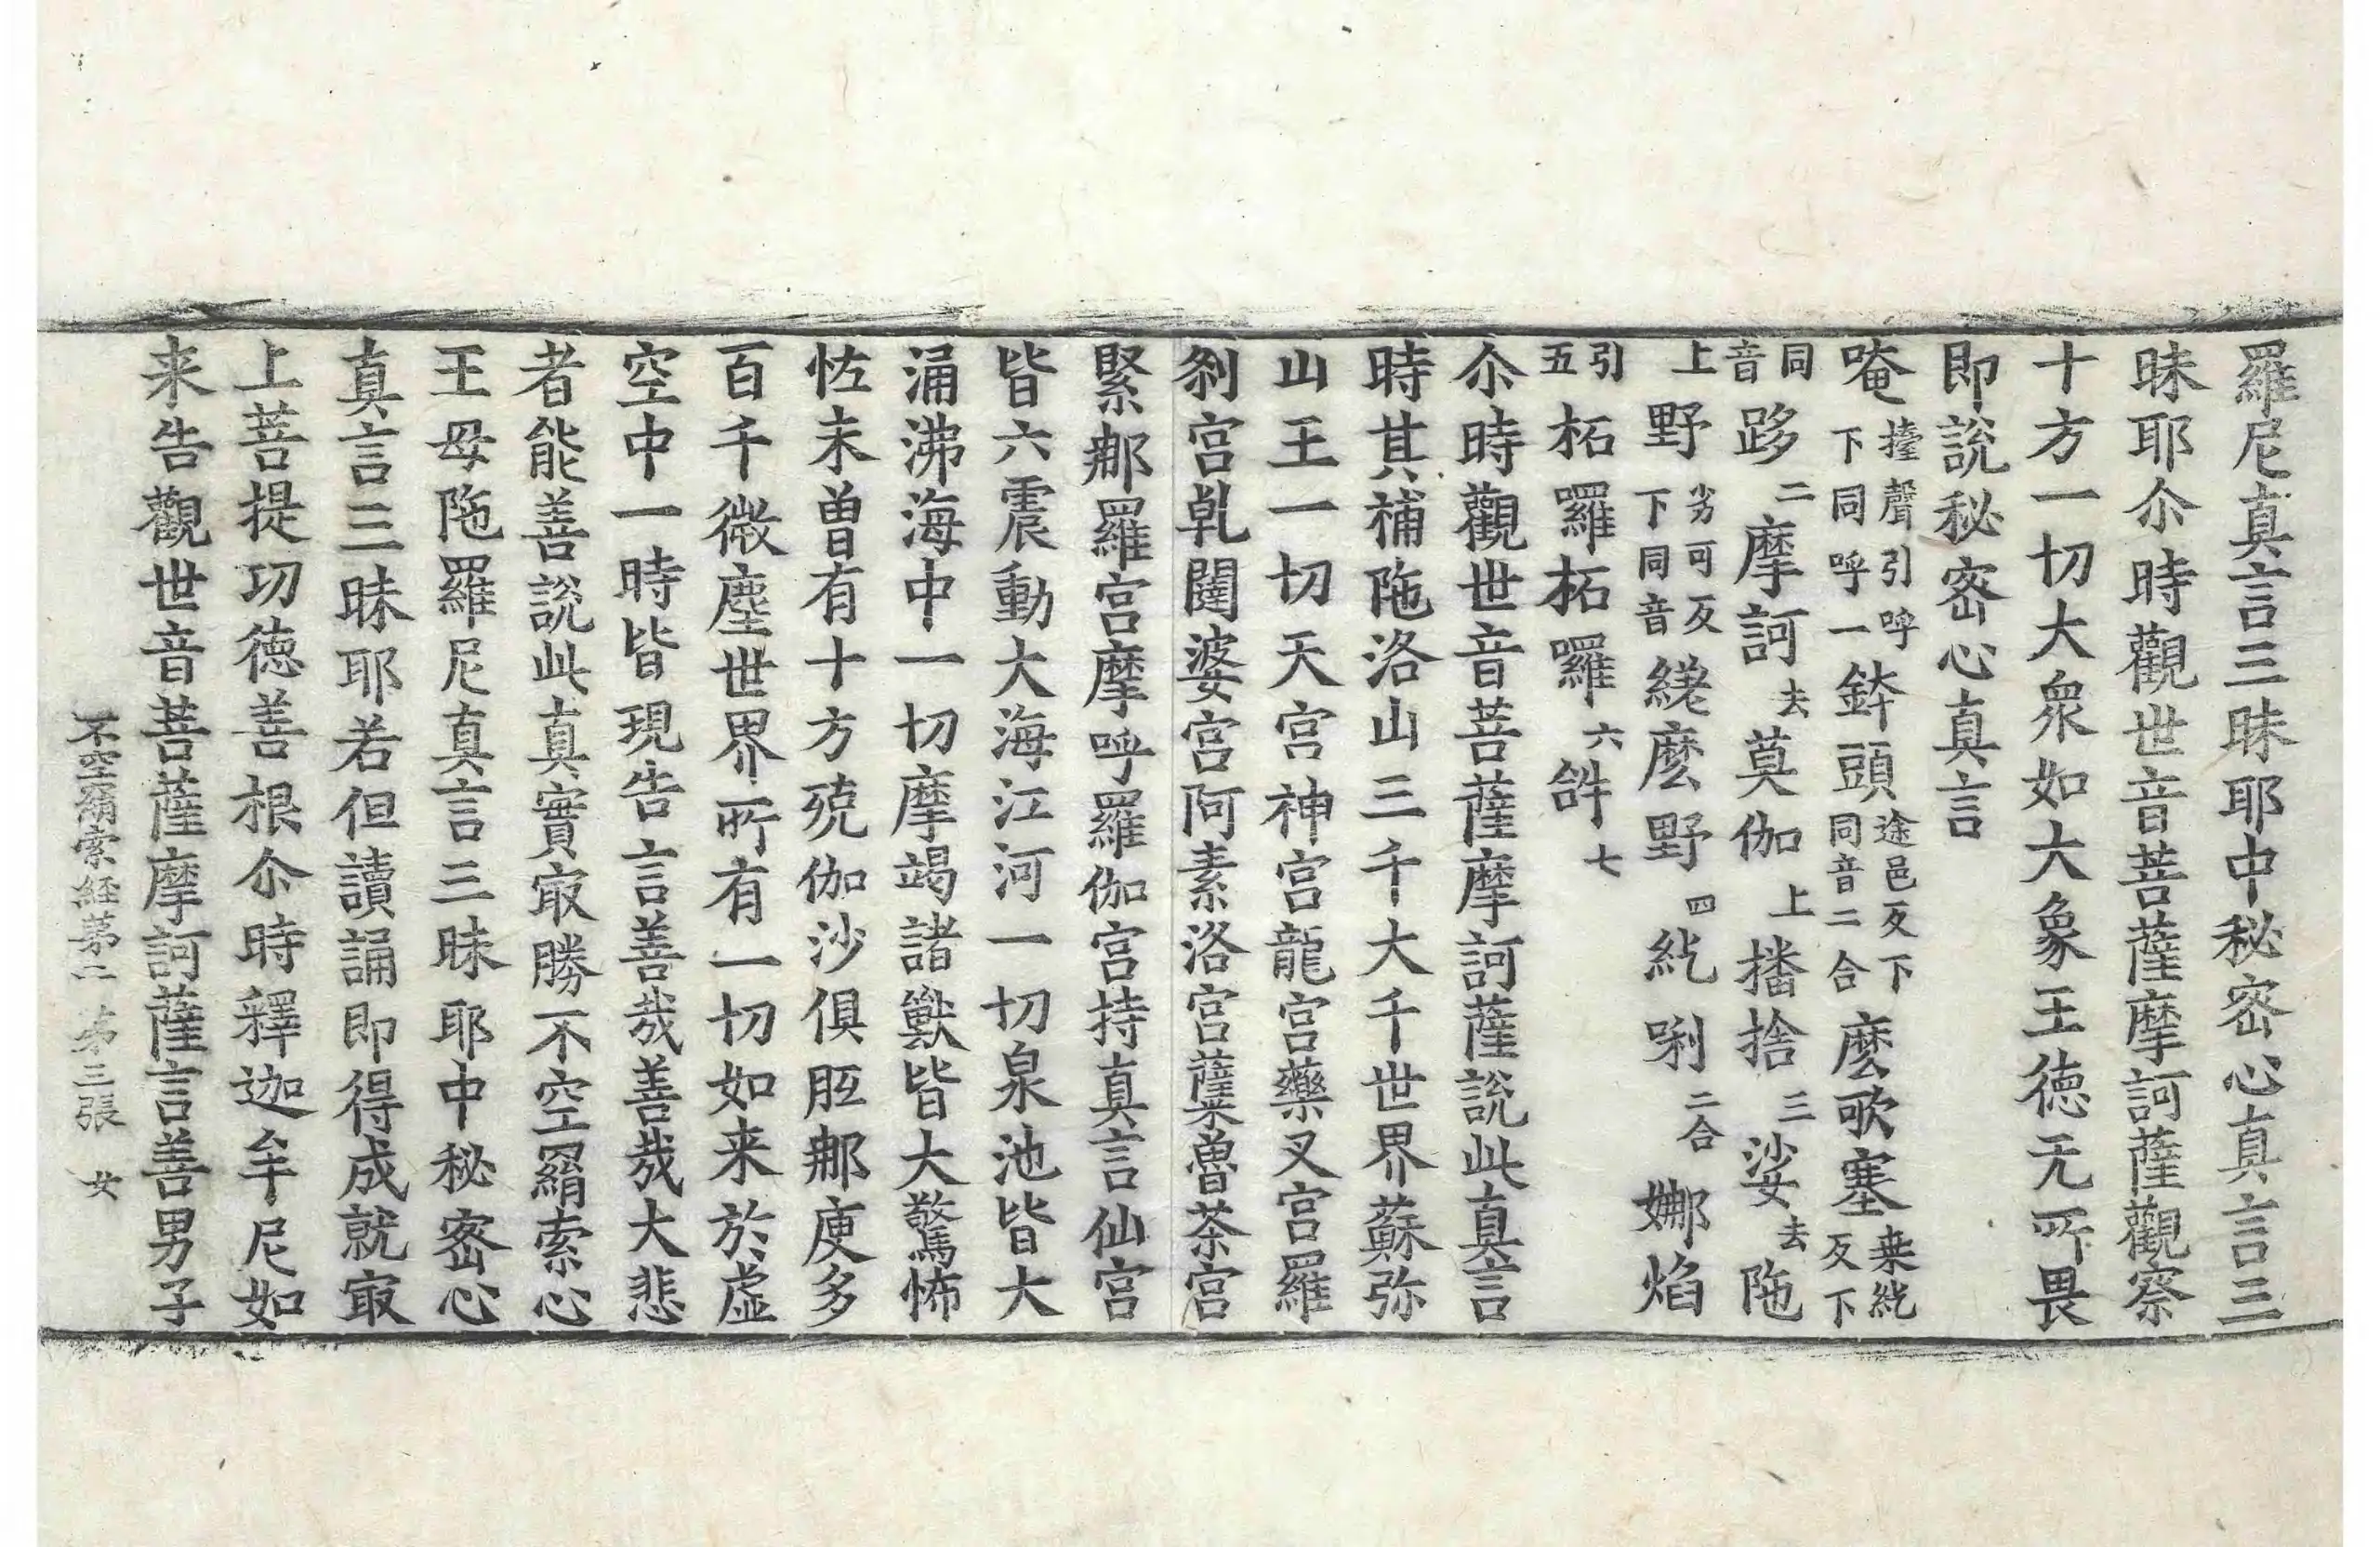 羅尼真言三昧耶中秘密心真言三
昧耶尒時觀世音菩薩摩訶薩觀察
十方一切大衆如大象王德无所畏
即說秘密心真言
唵擡聲引呼下同呼一鉢頭途邑反下同音二合麼歌塞桒紇反下
同音跢二摩訶去莫伽上播捨三娑去陁
上野劣可反下同音縒麽野四紇唎二合娜焰
引五柘羅柘囉六𤙖七
尒時觀世音菩薩摩訶薩說此真言
時其補陁洛山三千大千世界蘇弥
山王一切天宮神宮龍宮藥叉宮羅
剎宮乹闥婆宮阿素洛宮蘗魯荼宮
緊那羅宮摩呼羅伽宮持真言仙宮
皆六震動大海江河一切泉池皆大
涌沸海中一切摩竭諸獸皆大驚怖
恠未曾有十方殑伽沙俱胝那庾多
百千微塵世界所有一切如来於虛
空中一時皆現告言善哉善哉大悲
者能善說此真實㝡勝不空羂索心
王母陁羅尼真言三昧耶中秘密心
真言三昧耶若但讀誦即得成就㝡
上菩提㓛德善根尒時釋迦牟尼如
来告觀世音菩薩摩訶薩言善男子
不空羂索経第二 第三張 女